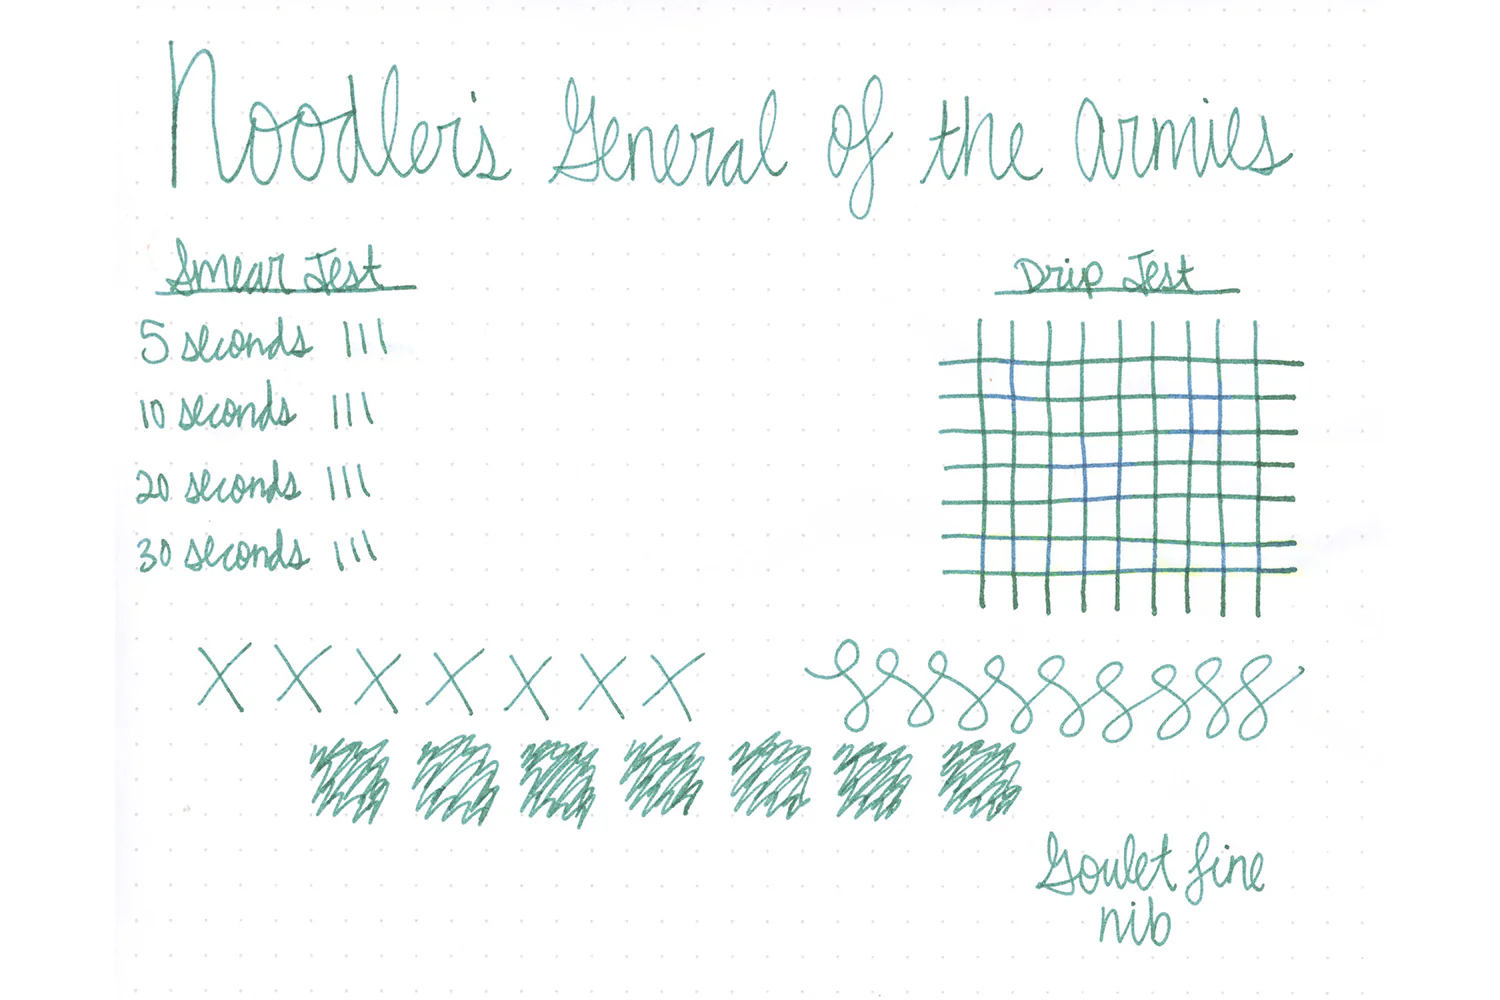 Noodler's General of the Armies
Smear Test
5 seconds |||
10 seconds |||
20 seconds |||
30 seconds |||
Drip Test
X X X X X X X
Goulet fine
nib